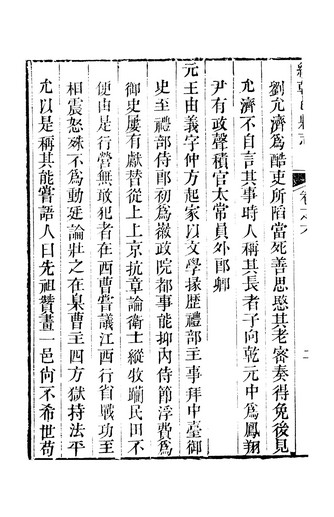 劉允濟爲酷吏所陷當死善思愍其老密奏得免後見
允濟不自言其事時人稱其長者子向乾元中爲鳳翔
尹有政聲積官太常員外郎卿
元王由義字仲方起家以文學掾歷禮部主事拜中臺御
史至禮部侍郎初爲徽政院都事能抑內侍節浮費爲
御史屢有獻替從上上京抗章論衛士縱牧躪民田不
便由是行營無敢犯者在西曹嘗議江西行省戰功至
相震怒殊不爲動廷論壯之在臬曹主四方獄持法平
允以是稱其能嘗語人曰先祖贊畫一邑尙不希世苟